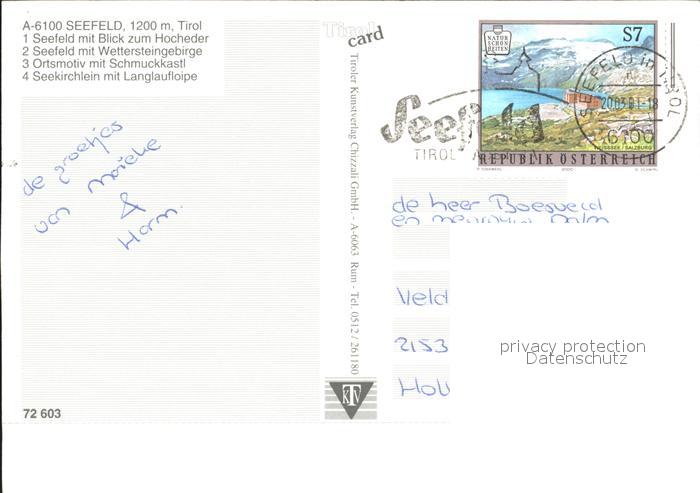 A-6100 SEEFELD, 1200 m, Tirol
1 Seefeld mit Blick zum Hocheder
2 Seefeld mit Wettersteingebirge
3 Ortsmotiv mit Schmuckkastl
4 Seekirchlein mit Langlaufloipe
de groetjes
van
&
Harm.
72 603
Tirol
card
Tiroler Kunstverlag Chizzali GmbH. - A-6063 Rum - Tel. 0512 / 261180
KTV
NATUR
SCHÖN
HEITEN
S7
WEISSSEE / SALZBURG
REPUBLIK ÖSTERREICH
2000
Seefeld
TIROL
SEEFELD in TIROL
20.03.01-18
6100
de heer Boesveld
en
Veld
2153
Hol
privacy protection
Datenschutz